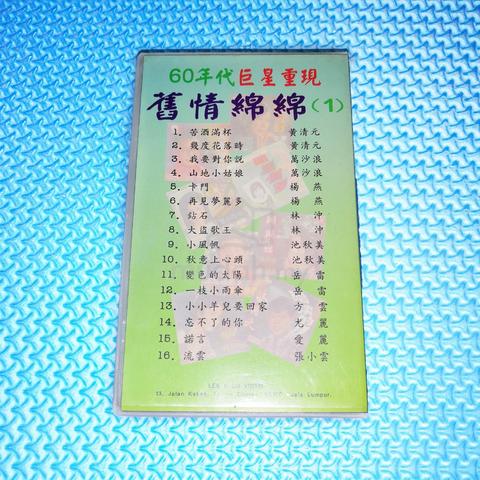 60年代巨星重現
舊情綿綿(1)
1. 苦酒滿杯 黃清元
2. 幾度花落時 黃清元
3. 我要對你說 萬沙浪
4. 山地小姑娘 萬沙浪
5. 卡門 楊燕
6. 再見夢麗多 楊燕
7. 鈷石 林沖
8. 大盜歌王 林沖
9. 小風帆 池秋美
10. 秋意上心頭 池秋美
11. 變色的太陽 岳雷
12. 一枝小雨傘 岳雷
13. 小小羊兒要回家 方雲
14. 忘不了的你 尤麗
15. 諾言 愛麗
16. 流雲 張小雲
13, Jalan Kuala Lumpur.